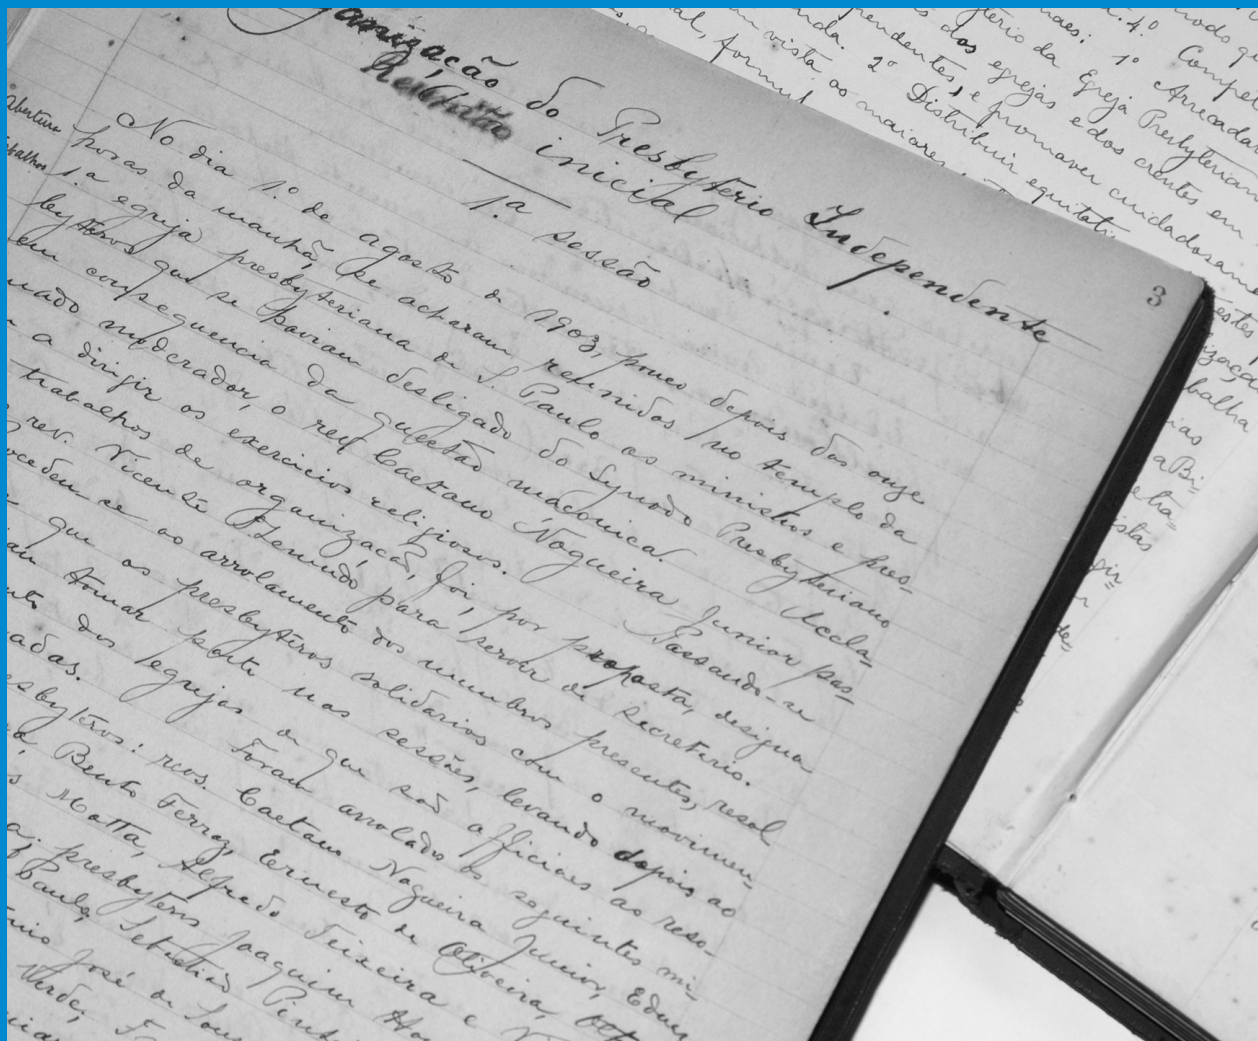 ganização do Presbyterio Independente
Reunião inicial
1.ª sessão
3
Abertura
trabalhos
No dia 1.º de agosto de 1903, pouco depois das onze
horas da manhã, se acharam reunidos no templo da
1.ª egreja presbyteriana de S. Paulo os ministros e pres-
byteros que se haviam desligado do Synodo Presbyteriano
em consequencia da questão maçonica. Accla-
mado moderador, o rev. Caetano Nogueira Junior pas-
a dirigir os exercicios religiosos. Passando-se
trabalhos de organização, foi, por proposta, designa
rev. Vicente Themudo para servir de secretario.
ocedeu-se ao arrolamento dos membros presentes, resol
que os presbyteros solidarios com o movimen-
am tomar parte nas sessões, levando depois ao
nto das egrejas de que são officiaes as reso-
adas. Foram arrolados os seguintes mi-
esbyteros: revs. Caetano Nogueira Junior, Edua
Bento Ferraz, Ernesto de Oliveira,
s Motta, Alfredo Teixeira e V
a; presbyteros Joaquim
Paulo, Sebastião Pint
nio José de Sou
Verde, F
4.º Compe
terio da Egreja Presbyterian
1º Arrecadar
das egrejas e dos crentes em
pendentes, e promover cuidadosame
2º Distribuir equitati
vista as maiores
al, formul
estes
ização
balha
ias
a Bi:
e tra=
istas
gir
de=